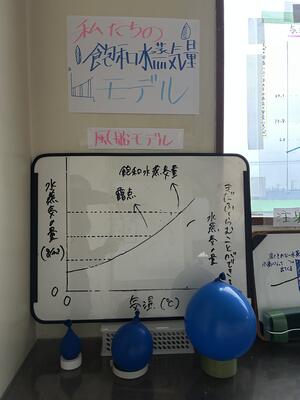 私たちの
飽和水蒸気量
モデル
風船モデル
飽和水蒸気量
露点
水蒸気の量
(g/m³)
水蒸気の量
0
0
気温(℃)